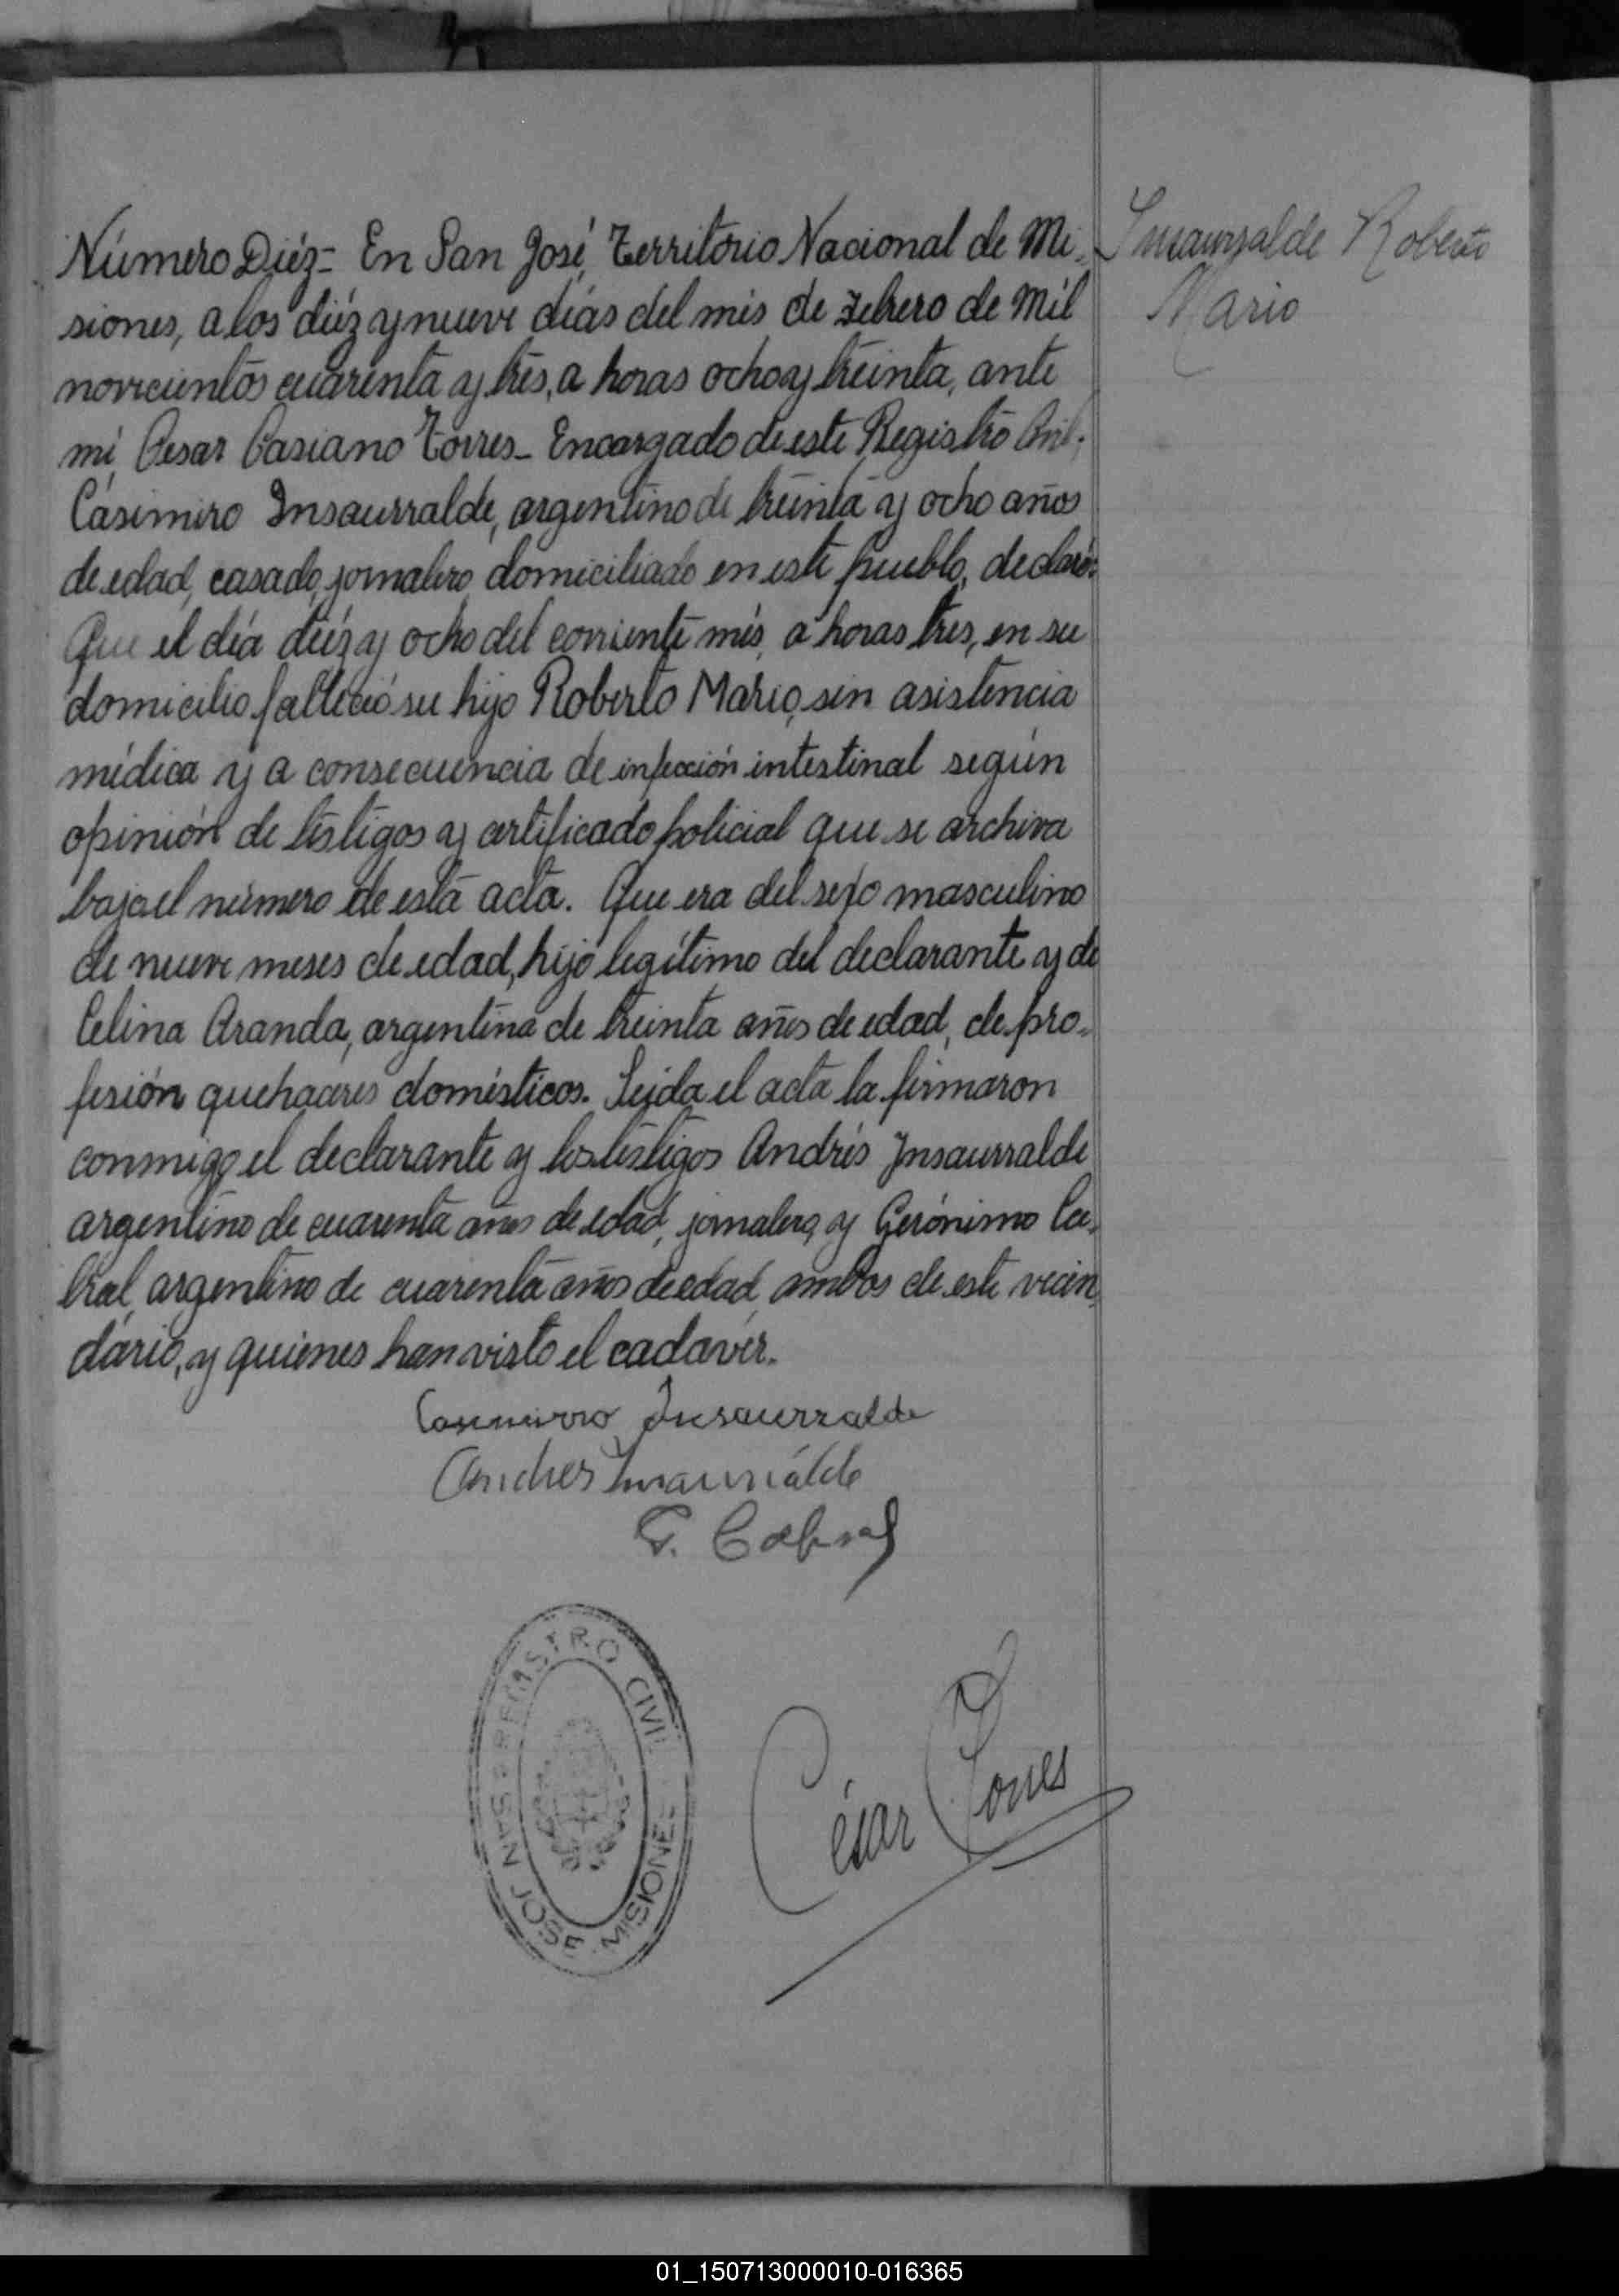 Número Diéz - En San José, Territorio Nacional de Mi-
siones, a los diéz y nueve días del mes de Febrero de Mil
novecientos cuarenta y tres, a horas ocho y treinta, ante
mí, Cesar Casiano Torres - Encargado de este Registro Civil.
Casimiro Insaurralde, argentino de treinta y ocho años
de edad, casado, jornalero, domiciliado en este pueblo, declaró:
Que el día diéz y ocho del corriente més, a horas tres, en su
domicilio falleció su hijo Roberto Mario, sin asistencia
médica y a consecuencia de infección intestinal según
opinión de testigos y certificado policial que se archiva
bajo el número de esta acta. Que era del sexo masculino
de nueve meses de edad, hijo legítimo del declarante y de
Celina Aranda, argentina de treinta años de edad, de pro-
fesión quehaceres domésticos. Leida el acta la firmaron
conmigo el declarante y los testigos Andrés Insaurralde
argentino de cuarenta años de edad, jornalero, y Gerónimo Ca-
bral, argentino de cuarenta años de edad, ambos de este vecin-
dario, y quienes han visto el cadáver.
Insaurralde Roberto
Mario
Casimirro Insaurralde
Andres Insaurralde
G. Cabral
César Torres
REGISTRO CIVIL
SAN JOSE MISIONES
01_150713000010-016365